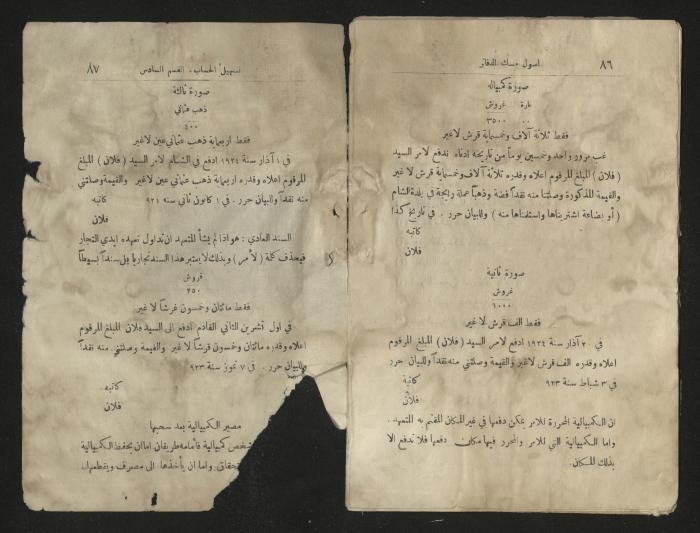 ٨٦
اصول مسك الدفاتر
صورة كمبيالة
بارة غروش
٠٠ ٣٥٠٠
فقط ثلاثة آلاف وخمسماية قرش لاغير
غب مرور واحد وخمسين يوماً من تاريخه ادناه ندفع لامر السيد
(فلان) المبلغ المرقوم اعلاه وقدره ثلاثة آلاف وخمسماية قرش لا غير
والقيمة المذكورة وصلتنا منه نقداً فضة وذهباً عملة رايجة في بلدة الشام
(أو بضاعة اشتريناها واستلمناها منه) وللبيان حرر . في تاريخ كذا
كاتبه
فلان
صورة ثانية
غروش
١٠٠٠
فقط الف قرش لاغير
في ٢٠ آذار سنة ١٩٢٤ ادفع لامر السيد (فلان) المبلغ المرقوم
اعلاه وقدره الف قرش لاغير والقيمة وصلتني منه نقداً وللبيان حرر
في ٣ شباط سنة ٩٢٣
كاتبة
فلان
ان الكمبيالية المحررة للامر يمكن دفعها في غير المكان المقيم به المتعهد .
واما الكمبيالية التي للامر والمحرر فيها مكان دفعها فلا تدفع الا
بذلك المكان.
تسهيل الحساب . القسم السادس
٨٧
صورة ثالثة
ذهب عثماني
٤٠٠
فقط اربعماية ذهب عثماني عين لاغير
في ١ آذار سنة ١٩٢٤ ادفع في الشام لامر السيد (فلان) المبلغ
المرقوم اعلاه وقدره اربعماية ذهب عثماني عين لاغير والقيمة وصلتني
منه نقداً وللبيان حرر . في ١ كانون ثاني سنه ٩٢١
كاتبه
فلان
السند العادي : هو اذا لم يشأ المتعهد ان تداول تعهده ايدي التجار
فيحذف كلمة (لأمر) وبذلك لا يعتبر هذا السند تجاريا بل سنداً بسيطاً
قروش
٢٥٠
فقط مائتان وخمسون غرشاً لا غير
في اول تشرين الثاني القادم ادفع الى السيد فلان المبلغ المرقوم
اعلاه وقدره مائتان وخمسون قرشاً لا غير والقيمة وصلتني منه نقداً
وللبيان حرر . في ٧ تموز سنة ٩٢٣
كاتبه
فلان
مصير الكمبيالية بعد سحبها
شخص كمبيالية فأمامه طريقان اما ان يحفظ الكمبيالية
واما ان يأخذها الى مصرف ويقطعها